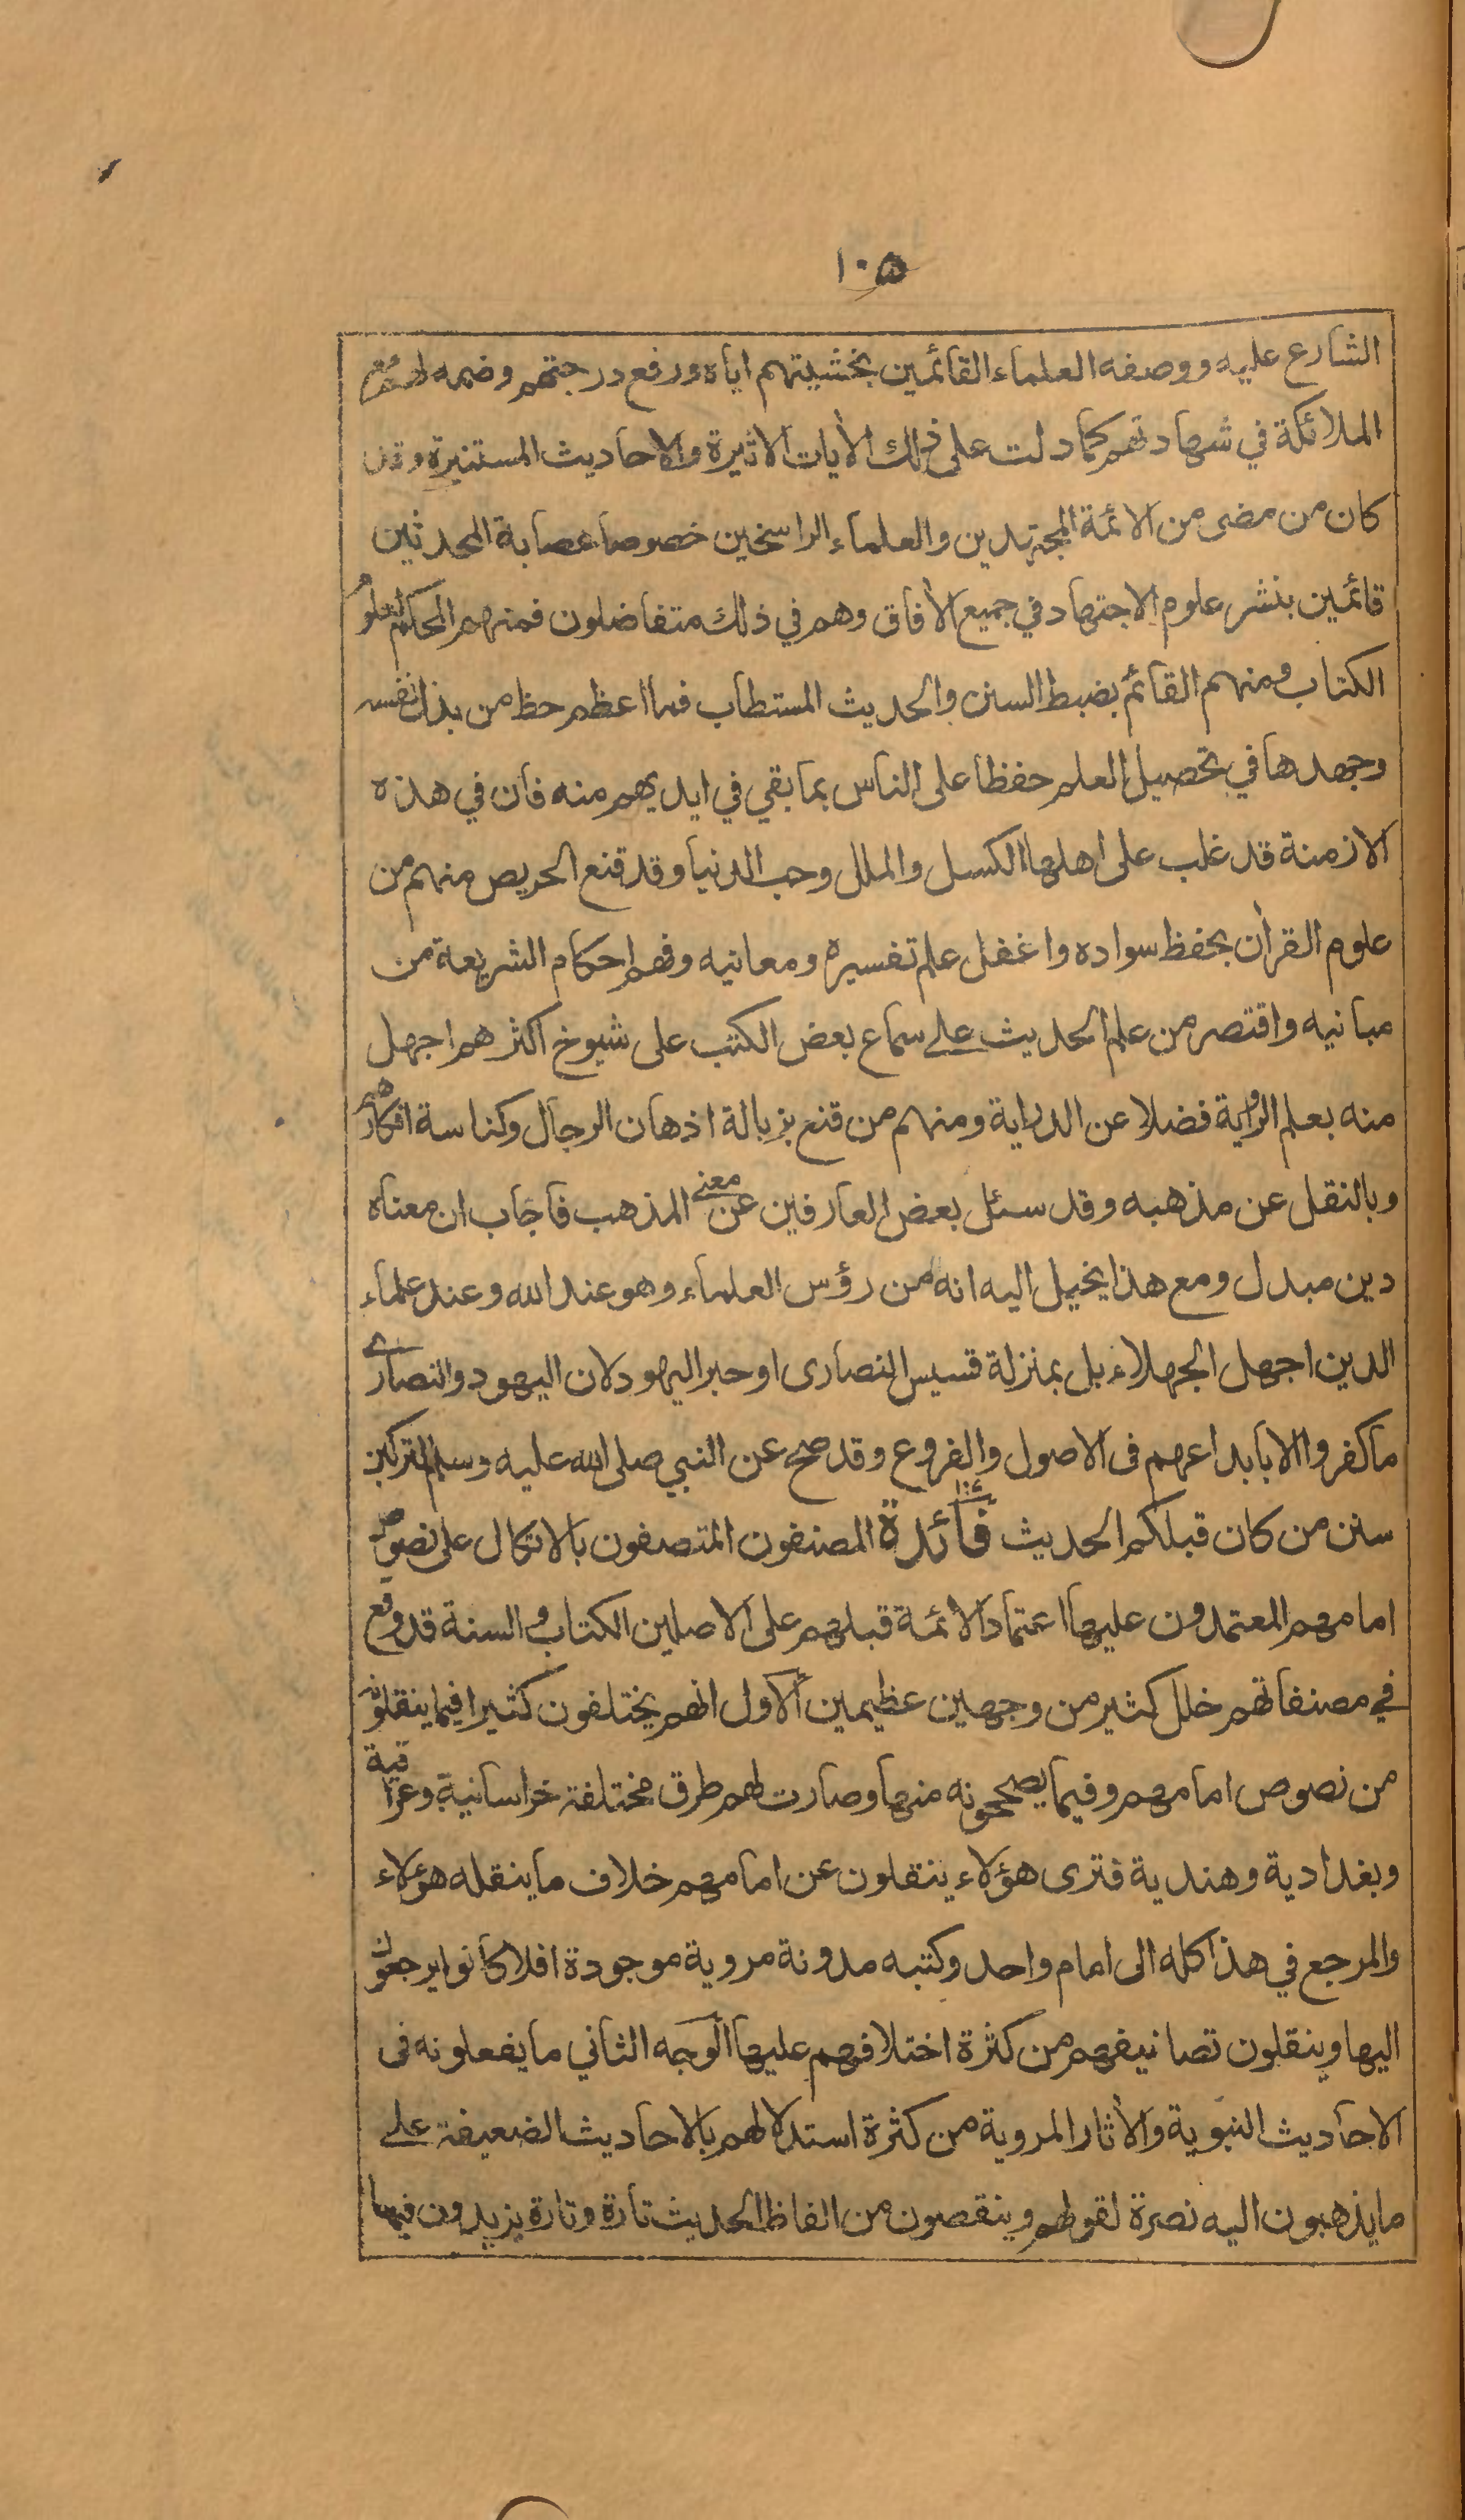 ١٠٥
الشارع عليه ووصفه العلماء القائمين بخشيتهم اياه ورفع درجتهم وضمه لهم مع
الملائكة في شهادتهم كما دلت على ذلك الأيات الاثيرة والاحاديث المستنيرة وقد
كان من مضى من الائمة المجتهدين والعلماء الراسخين خصوصا عصابة المحدثين
قائمين بنشر علوم الاجتهاد في جميع الأفاق وهم في ذلك متفاضلون فمنهم المحكم لعلوم
الكتاب ومنهم القائم بضبط السنن والحديث المستطاب فما اعظم حظ من بذل نفسه
وجهدها في تحصيل العلم حفظا على الناس بما بقي في ايديهم منه فان في هذه
الازمنة قد غلب على اهلها الكسل والملل وحب الدنيا وقد قنع الحريص منهم من
علوم القرأن بحفظ سواده واغفل علم تفسيره ومعانيه وفهم احكام الشريعة من
مبانيه واقتصر من علم الحديث على سماع بعض الكتب على شيوخ اكثرهم اجهل
منه بعلم الرواية فضلا عن الدراية ومنهم من قنع بزبالة اذهان الرجال وكناسة افكارهم
وبالنقل عن مذهبه وقد سئل بعض العارفين عن معنى المذهب فاجاب ان معناه
دين مبدل ومع هذا يخيل اليه انه من رؤس العلماء وهو عند الله وعند علماء
الدين اجهل الجهلاء بل بمنزلة قسيس النصارى او حبر اليهود لان اليهود والنصارى
ما كفروا الا بابداعهم فى الاصول والفروع وقد صح عن النبي صلى الله عليه وسلم لتركبن
سنن من كان قبلكم الحديث فائدة المصنفون المتصفون بالاتكال على نصوص
امامهم المعتمدون عليها اعتماد الائمة قبلهم على الاصلين الكتاب والسنة قد وقع
في مصنفاتهم خلل كثير من وجهين عظيمين الأول انهم يختلفون كثيرا فيما ينقلونه
من نصوص امامهم وفيما يصححونه منها وصارت لهم طرق مختلفة خراسانية وعراقية
وبغدادية وهندية فترى هؤلاء ينقلون عن امامهم خلاف ما ينقله هؤلاء
والمرجع في هذا كله الى امام واحد وكتبه مدونة مروية موجودة افلا كانوا يرجعون
اليها وينقلون تصانيفهم من كثرة اختلافهم عليها الوجه الثاني ما يفعلونه فى
الاحاديث النبوية والأثار المروية من كثرة استدلالهم بالاحاديث الضعيفة على
ما يذهبون اليه نصرة لقولهم وينقصون من الفاظ الحديث تارة وتارة يزيدون فيها